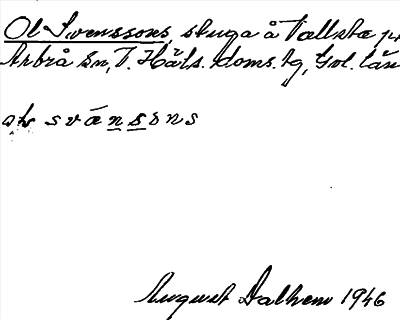 Ol Svenssons, stuga å Vallsta
Arbrå Sn, V. Häls. doms. tg, Gvl. län
svänsons
August Dalhem 1946